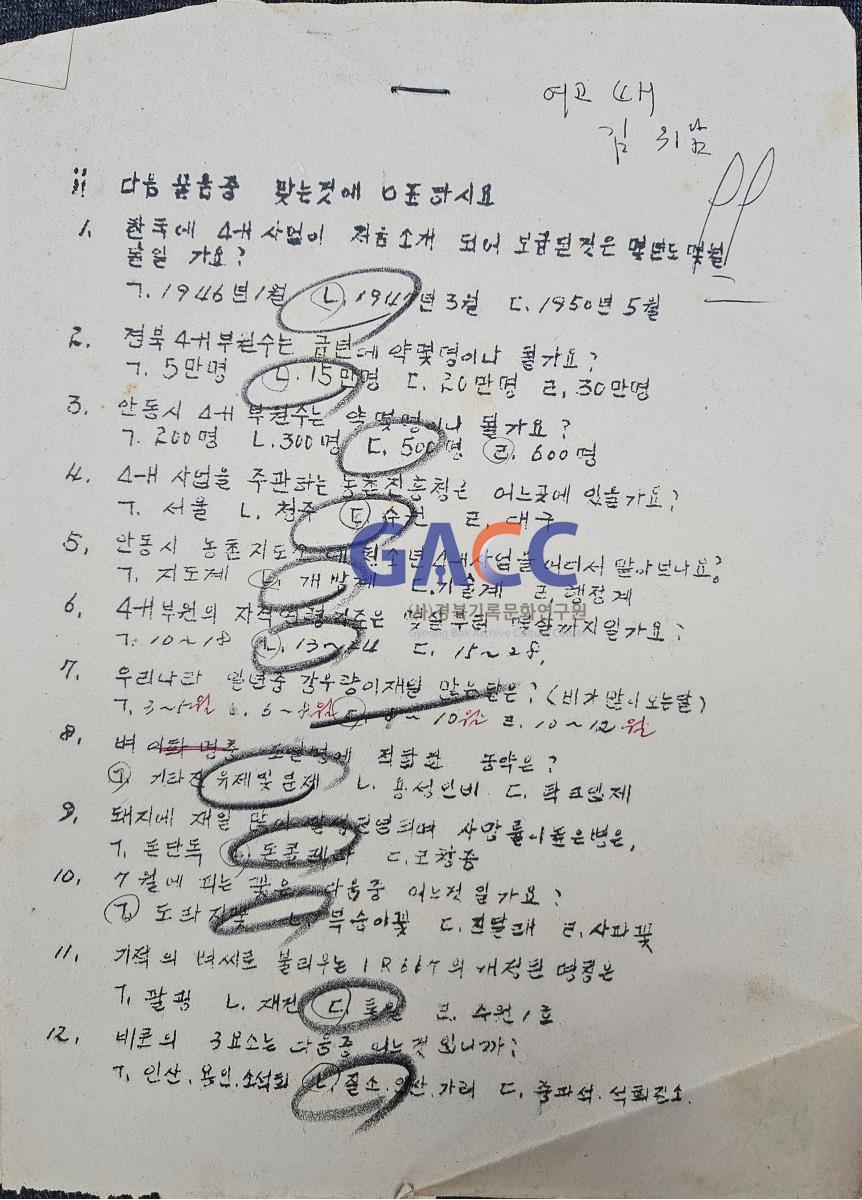 여고 4H
김 의남
다음 물음중 맞는것에 O표 하시요
1. 한국에 4-H 사업이 처음 소개 되어 보급된것은 몇년도 몇월
물일 가요?
ㄱ. 1946년 1월 ㄴ. 1947년 3월 ㄷ. 1950년 5월
2. 경북 4-H 부원수는 금년에 약몇명이나 될가요?
ㄱ. 5만명 ㄴ. 15만명 ㄷ. 20만명 ㄹ. 30만명
3. 안동시 4-H 부원수는 약 몇명이나 될가요?
ㄱ. 200명 ㄴ. 300명 ㄷ. 500명 ㄹ. 600명
4. 4-H 사업을 주관하는 농촌진흥청은 어느곳에 있을가요?
ㄱ. 서울 ㄴ. 청주 ㄷ. 수원 ㄹ. 대구
GACC
5. 안동시 농촌지도소에 청소년 4-H사업을 어디서 맡아보나요?
ㄱ. 지도계 ㄴ. 개발계 ㄷ. 기술계 ㄹ. 행정계
(사)경북기록문화연구원
6. 4-H부원의 자격연령기준은 몇살부터 몇살까지일가요?
ㄱ. 10~18 ㄴ. 13~24 ㄷ. 15~28.
7. 우리나라 일년중 강우량이재일 많은달은? (비가많이오는달)
ㄱ. 3~5월 ㄴ. 6~8월 ㄷ. 8~10월 ㄹ. 10~12.월
8. 벼 적합한 농약은?
ㄱ. 유제및분제 ㄴ. ㄷ.
9. 돼지에 재일 많이 사망률이높은병은.
ㄱ. 돈단독 ㄴ. 돈콜레라 ㄷ.
10. 7월에 피는 꽃은 다음중 어느것 일가요?
ㄱ. 도라지꽃 ㄴ. ㄷ. 진달래 ㄹ. 사과꽃
11. 기적의 벼씨로 불리우는 IR667의 개정된 명칭은
ㄱ. 팔굉 ㄴ. 재건 ㄷ. 통일 ㄹ. 수원1호
12. 비료의 3요소는 다음중 어느것 입니까?
ㄱ. 인산. 용인. 소석회 ㄴ. 질소. 인산. 가리 ㄷ.